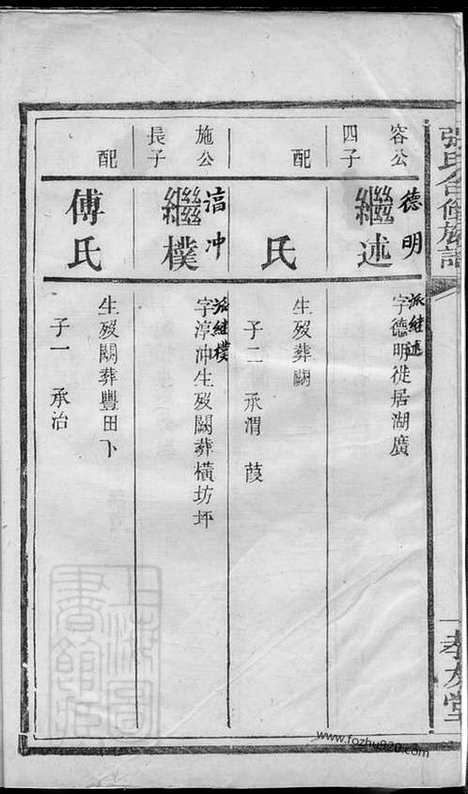 張氏合修族譜
孝友堂
容公四子
德明
繼述
派継述
字德明徙居湖廣
配
氏
生歿葬闕
子二 承渭 葭
施公長子
冲
繼樸
派継樸
字淳冲生歿闕葬橫坊坪
配
傅氏
生歿闕葬豐田下
子一 承治
上海圖書館藏
www.fozhu920.com